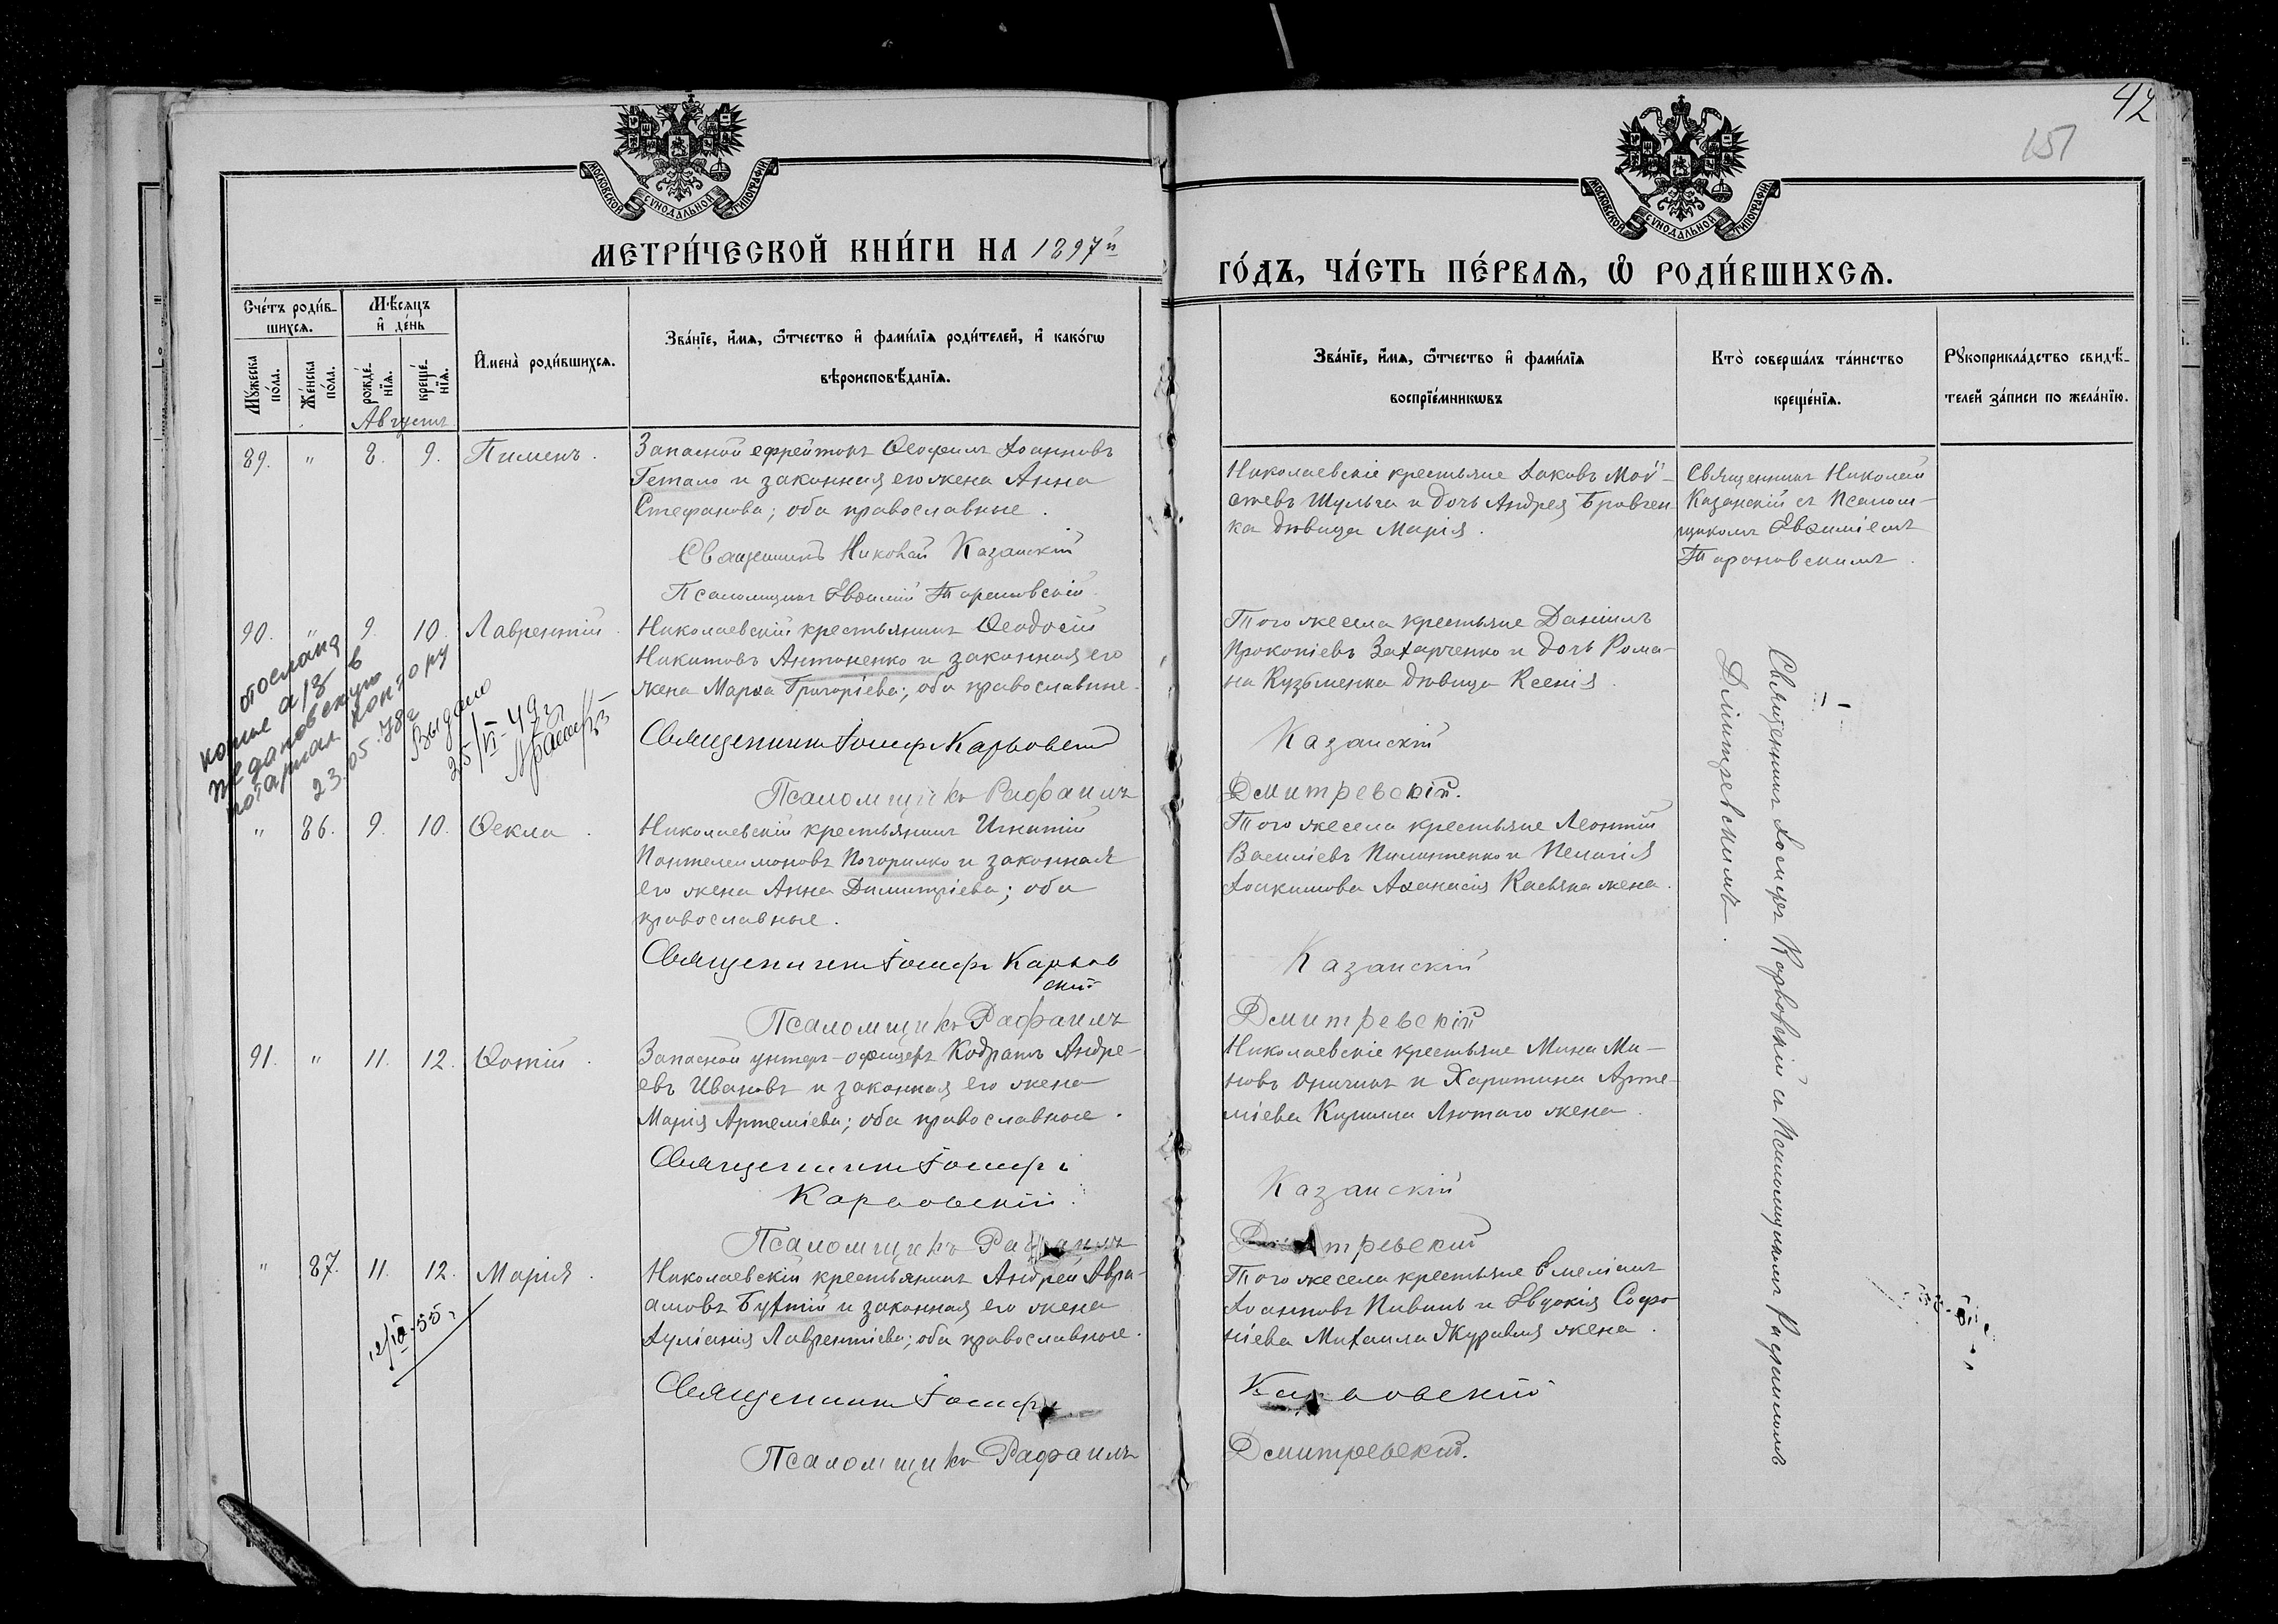 42
151
МОСКОВСКОЙ СѴНОДАЛЬНОЙ ТИПОГРАФІИ
МОСКОВСКОЙ СѴНОДАЛЬНОЙ ТИПОГРАФІИ
МЕТРИ́ЧЕСКОЙ КНИ́ГИ НА 1897й
ГО́ДЪ, ЧА́СТЬ ПЕ́РВАѦ, Ѡ҆ РОДИ́ВШИХСѦ.
Сче́тъ роди́в-
шихсѧ.
Мѣ́сѧцъ
и҆ де́нь
Мꙋ́жеска по́ла.
Же́нска по́ла.
рожде́-нїѧ.
креще́-нїѧ.
И҆мена̀ роди́вшихсѧ.
Зва́нїе, и҆́мѧ, ѻ҆́тчество и҆ фами́лїѧ роди́телей, и҆ како́гѡ
вѣроисповѣ́данїѧ.
Зва́нїе, и҆́мѧ, ѻ҆́тчество и҆ фами́лїѧ
воспрїе́мникѡвъ
Кто̀ соверша́лъ та́инство
креще́нїѧ.
Рꙋкоприкла́дство свидѣ́-
телей за́писи по жела́нїю.
Августъ
89. " 8. 9. Пименъ.
Запасной ефрейторъ Ѳеофилъ Іоанновъ
Гетало и законная его жена Анна
Стефанова; оба православные.
Священникъ Николай Казанскій
Псаломщикъ Евѳимій Тарановскій
Николаевскіе крестьяне Іаковъ Мой-
сеевъ Шульга и дочь Андрея Бровчен-
ка дѣвица Марія.
Священникъ Николай
Казанскій съ Псалом-
щикомъ Евѳиміемъ
Тарановскимъ.
90. " 9. 10. Лаврентій.
Николаевскій крестьянинъ Ѳеодосій
Никитовъ Антоненко и законная его
жена Марѳа Григоріева; оба православные.
Священникъ Іосифъ Карповскій
Псаломщикъ Рафаилъ
Того же села крестьяне Даніилъ
Прокопіевъ Захарченко и дочь Рома-
на Кузьменка дѣвица Ксенія.
Казанскій
Дмитревскій.
отослана
копие а/з в
Ждановскую
нотариал контору
23.05.78г
Выдано
25/VI-49г
" 86. 9. 10. Ѳекла.
Николаевскій крестьянинъ Игнатій
Пантелеимоновъ Погорилко и законная
его жена Анна Димитріева; оба
православные.
Священникъ Іосифъ Карпов
скій
Псаломщикъ Рафаилъ
Того же села крестьяне Леонтій
Василіевъ Пилипенко и Пелагія
Іоакимова Аѳанасія Касьяна жена.
Казанскій
Дмитревскій
91. " 11. 12. Ѳотій.
Запасной унтеръ-офицеръ Кодратъ Андре-
евъ Ивановъ и законная его жена
Марія Артеміева; оба православные.
Священникъ Іосифъ
Карповскій.
Псаломщикъ Рафаилъ
Николаевскіе крестьяне Мина Ми-
новъ и Харитина Арте-
міева Кирилла Лютаго жена.
Казанскій
Дмитревскій
" 87. 11. 12. Марія.
Николаевскій крестьянинъ Андрей Авра-
амовъ Бухтій и законная его жена
Іуліанія Лаврентіева; оба православные.
Священникъ Іосифъ
Псаломщикъ Рафаилъ
Того же села крестьяне Емеліанъ
Іоанновъ Пивень и Евдокія Софро-
ніева Михаила Журавля жена.
Карповскій
Дмитревскій.
Священникъ Іосифъ Карповскій съ Псаломщикомъ Рафаиломъ
Димитревскимъ.